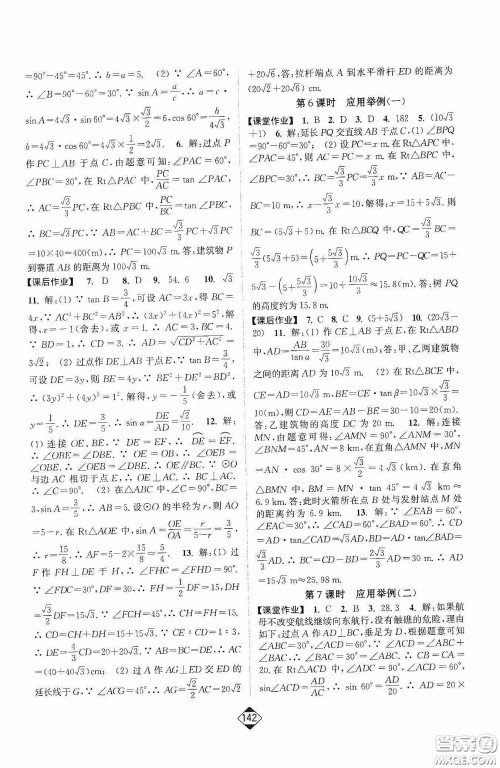 =90°-45°=45°.∴ b=a=5. (2) ∵ ∠A=60°,
∴ ∠B=90°-60°=30°.∵ sin A=a/c,∴ a=c·
sin A=4√3·sin 60°=4√3×√3/2=6,cos 60°=b/c,∴
b=4√3·cos 60°=4√3×1/2=2√3. 6. 解:过点 P
作 PC⊥AB 于点 C,由题意可知,∠PAC=60°,
∠PBC=30°,在 Rt△PAC 中,PC/AC=tan ∠PAC,
∴ AC=√3/3 PC,在 Rt△PBC 中,PC/BC=tan ∠PBC,
∴ BC=√3PC.∵ AB=AC+BC=√3/3 PC+√3PC
=10×40=400(m),∴ PC=100√3 m.答:建筑物 P
到赛道 AB 的距离为 100√3 m.
【课后作业】 7. D 8. D 9. 54.6 10. √3
11. 解:(1) ∵ tan B=3/4,可设 AC=3x,得 BC=4x,
∵ AC²+BC²=AB²,∴ (3x)²+(4x)²=5²,解得
x=-1(舍去),或 x=1.∴ AC=3,BC=4.
∵ BD=1,∴ CD=3,∴ AD=√(CD²+AC²)=
3√2; (2) 过点作 DE⊥AB 于点 E,∵ tan B=
3/4,可设 DE=3y,则 BE=4y,∵ BE²+DE²=BD²,
∴ (3y)²+(4y)²=1²,解得 y=-1/5(舍去),或
y=1/5,∴ DE=3/5,∴ sin α=DE/AD=√2/10. 12. 解:
(1) 连接 OE,BE,∵ DE=EF,∴ DE=EF,
∴ ∠OBE=∠DBE.∵ OE=OB,∴ ∠OEB=
∠OBE,∴ ∠OEB=∠DBE,∴ OE∥BC.∵ ⊙O
与边 AC 相切于点 E,∴ OE⊥AC,∴ BC⊥AC,
∴ ∠C=90°; (2) 在△ABC 中,∠C=90°,BC=
3,sin A=3/5,∴ AB=5,设⊙O 的半径为 r,则 AO
=5-r.在 Rt△AOE 中,sin A=OE/OA=r/(5-r)=3/5,
∴ r=15/8,∴ AF=5-2×15/8=5/4. 13. 解:(1) 过
F 作 FH⊥DE 于 H,∴ ∠FHC=∠FHD=90°.
∵ ∠FDC=30°,DF=30,∴ FH=1/2 DF=15,
DH=√3/2 DF=15√3,∵ ∠FCH=45°,∴ CH=FH=15,
∴ CD=CH+DH=15+15√3,∵ CE:CD=1:3,
∴ DE=4/3 CD=20+20√3,∵ AB=BC=DE,∴ AC
=(40+40√3)cm; (2) 过 A 作 AG⊥ED 交 ED 的
延长线于 G,∵ ∠ACG=45°,∴ AG=√2/2 AC=20√2
+20√6.答:拉杆端点 A 到水平滑杆 ED 的距离为
(20√2+20√6)cm.
第 6 课时 应用举例(一)
【课堂作业】 1. B 2. D 3. D 4. 182 5. (10√3
+1) 6. 解:延长 PQ 交直线 AB 于点 C, (1) ∠BPQ
=90°-60°=30°; (2) 设 PC=x m.在 Rt△APC
中,∠PAC=45°,则 AC=PC=x m;∵ ∠PBC=
60°,∴ ∠BPC=30°,在 Rt△BPC 中,
BC=√3/3 PC=√3/3 x m,∵ AB=AC-
BC=10 m,∴ x-√3/3 x=10,解得:x=15+5√3.则
BC=(5√3+5)m.在 Rt△BCQ 中,QC=√3/3
BC=√3/3(5√3+5)=(5+5√3/3)m.∴ PQ=PC-QC=
15+5√3-(5+5√3/3)≈15.8(m).答:树 PQ
的高度约为 15.8 m.
【课后作业】 7. A 8. C 9. (5+5√3) 10. (20√3
-20) 11. 解:(1) 作 CE⊥AB 于点 E,在 Rt△ABD
中,AD=AB/tan α=30/√3=10√3(m).答:甲、乙两建筑物
之间的距离 AD 为 10√3 m. (2) 在 Rt△BCE 中,
CE=AD=10√3 m,BE=CE·tan β=10√3×√3/3
=10(m),则 CD=AE=AB-BE=30-10=20(m).
答:乙建筑物的高度 DC 为 20 m. 12. 解:连接
MN,由题意可得:∠AMN=90°,∠ANM=
30°,∠BNM=45°,AN=8 km,在直角△AMN 中,MN
=AN·cos 30°=8×√3/2=4√3(km).在直角
△BMN 中,BM=MN·tan 45°=4√3 km≈
6.9 km.答:此时火箭所在点 B 处与发射站点 M 处
的距离约为 6.9 km. 13. 解:∵ ∠EAB=60°,
∠EAC=30°,∴ ∠CAD=60°,∠BAD=30°,∴ CD=
AD·tan ∠CAD=√3AD,BD=AD·tan ∠BAD=
√3/3 AD.∴ BC=CD-BD=2√3/3 AD=30.∴ AD=
15√3 m≈25.98 m.
第 7 课时 应用举例(二)
【课堂作业】 1. C 2. B 3. 28.3 4. 解:如果航
母不改变航线继续向东航行,没有触礁的危险,理由
如下:过点 A 作 AD⊥BC,垂足为 D,根据题意可知
∠ABC=30°,∠ACD=60°.∵ ∠ACD=∠ABC+
∠BAC,∴ ∠BAC=30°=∠ABC,∴ CB=CA=
20.在 Rt△ACD 中,∠ADC=90°,∠ACD=60°,
sin ∠ACD=AD/AC,∴ sin 60°=AD/20,∴ AD=20×
142
答案圈
MXQE.COM